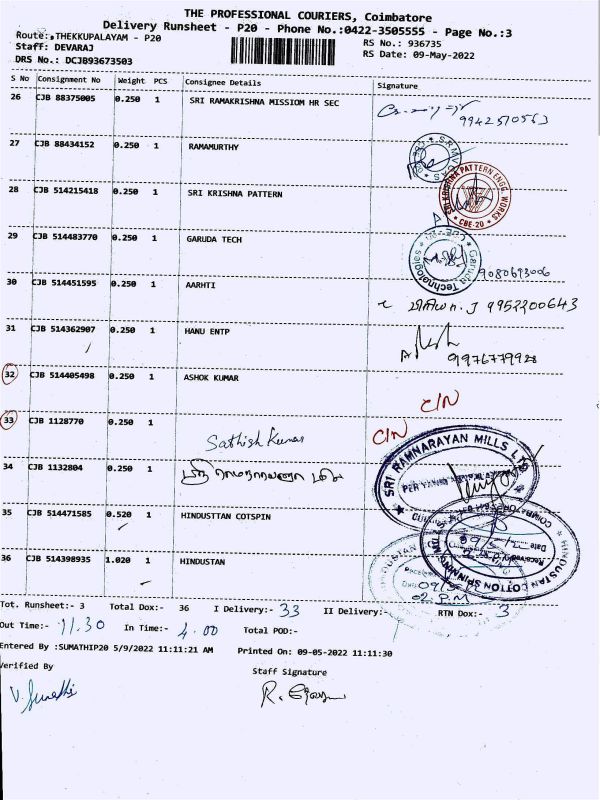 THE PROFESSIONAL COURIERS, Coimbatore
Delivery Runsheet - P20 - Phone No.:0422-3505555 - Page No.:3
Route: THEKKUPALAYAM - P20
RS No.: 936735
Staff: DEVARAJ
RS Date: 09-May-2022
DRS No.: DCJB93673503
S No Consignment No Weight PCS Consignee Details Signature
26 CJB 88375005 0.250 1 SRI RAMAKRISHNA MISSIOM HR SEC
9942570563
27 CJB 88434152 0.250 1 RAMAMURTHY
28 CJB 514215418 0.250 1 SRI KRISHNA PATTERN
SRI KRISHNA PATTERN ENGG. WORKS
CBE-20
29 CJB 514483770 0.250 1 GARUDA TECH
Garuda Technologies
9080693006
30 CJB 514451595 0.250 1 AARHTI
J 9952200643
31 CJB 514362907 0.250 1 HANU ENTP
9976779928
32 CJB 514405498 0.250 1 ASHOK KUMAR
C/N
33 CJB 1128770 0.250 1
Sathish Kumar C/N
34 CJB 1132804 0.250 1
SRI RAMNARAYAN MILLS LTD
35 CJB 514471585 0.520 1 HINDUSTTAN COTSPIN
HINDUSTAN COTTON SPINNING
36 CJB 514398935 1.020 1 HINDUSTAN
Tot. Runsheet:- 3 Total Dox:- 36 I Delivery:- 33 II Delivery:- RTN Dox:- 3
Out Time:- 11.30 In Time:- 4.00 Total POD:-
Entered By :SUMATHIP20 5/9/2022 11:11:21 AM Printed On: 09-05-2022 11:11:30
Verified By Staff Signature
V. Sumathi